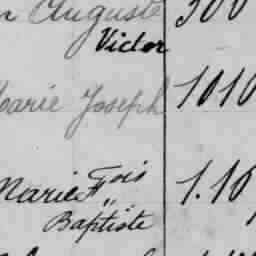 Auguste 300
Victor
Marie Joseph 1010
Marie Fois 1.10
"
Baptiste